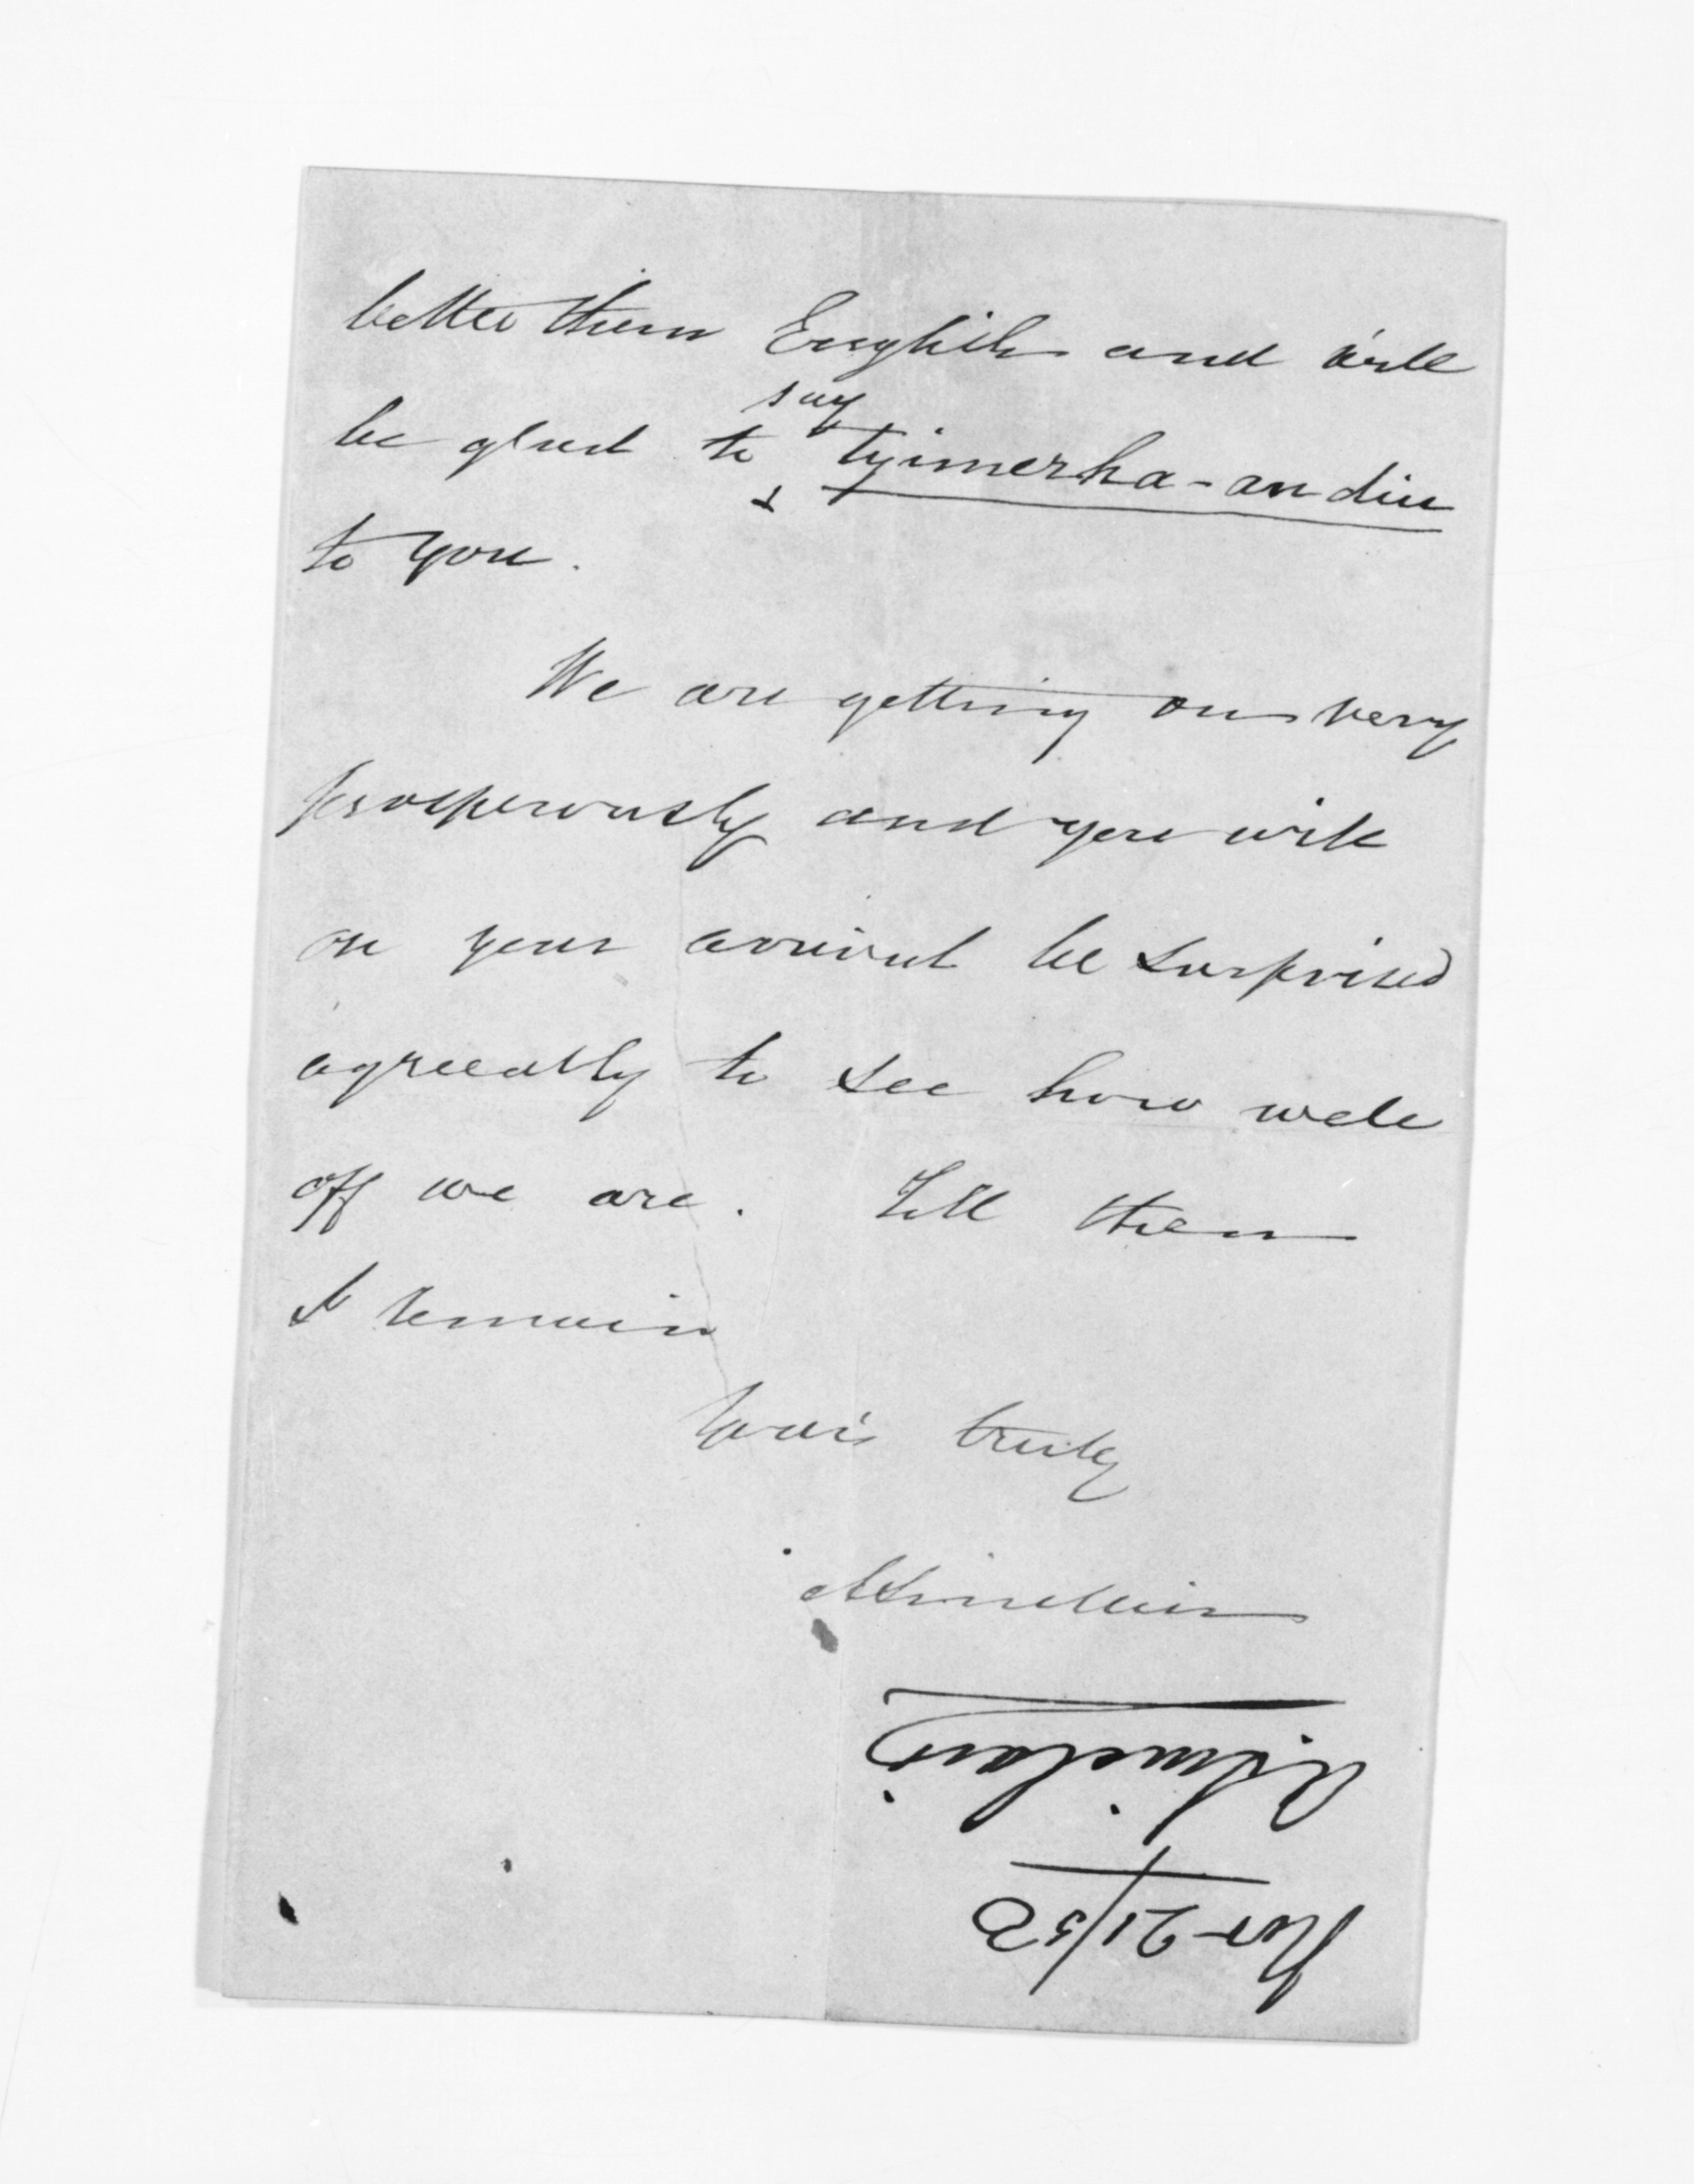 better than English and will
be glad to say tyimerka-an din
to you.
We are getting on very
prosperously and you will
on your arrival be surprised
agreeably to see how well
off we are. Till then
I remain
Yours truly
A Sinclair
A. Sinclair
Nov 21/50